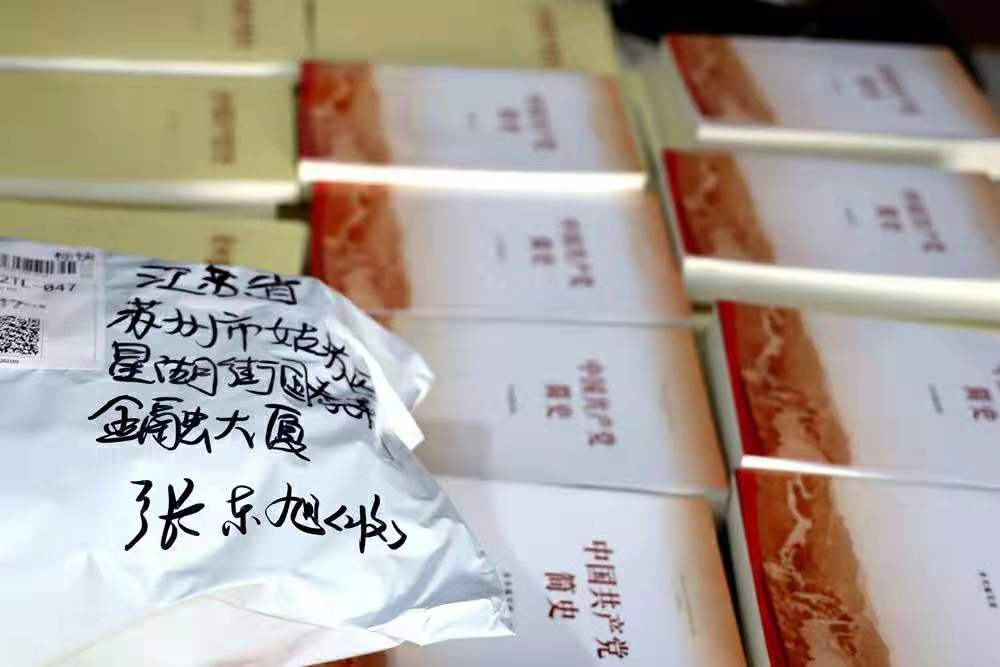 2TL-047
江苏省
苏州市姑苏区
星湖街国际
金融大厦
张东旭(收)
中国共产党
简史
中国共产党
简史
中国共产党
简史
中国共产党
简史
中国共产党
简史
中国共产党
简史
简史